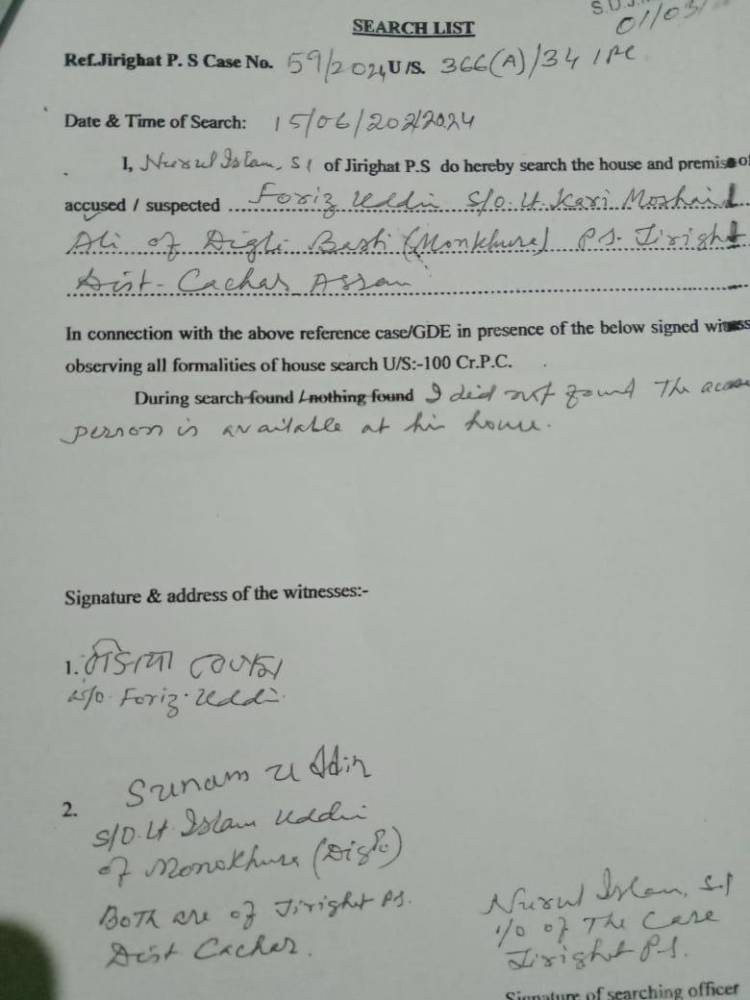 S.D.J.M
01/03/
SEARCH LIST
Ref.Jirighat P. S Case No. 59/2024 U/S. 366(A)/34 IPC
Date & Time of Search: 15/06/2024
I, Nurul Islam, SI of Jirighat P.S do hereby search the house and premise of
accused / suspected Foriz Uddin S/O. Lt. Kari Moshaid
Ali of Digli Basti (Monkhura) P.S. Jirighat
Dist - Cachar Assam
In connection with the above reference case/GDE in presence of the below signed witness
observing all formalities of house search U/S:-100 Cr.P.C.
During search found / nothing found I did not found The accuse
person is available at his house.
Signature & address of the witnesses:-
1.
w/o. Foriz Uddin.
2. Sunam Uddin
S/O. Lt. Islam Uddin
of Monokhura (Digli)
Both are of Jirighat P.S.
Dist Cachar.
Nurul Islam, S.I
I/O of The Case
Jirighat P.S.
Signature of searching officer